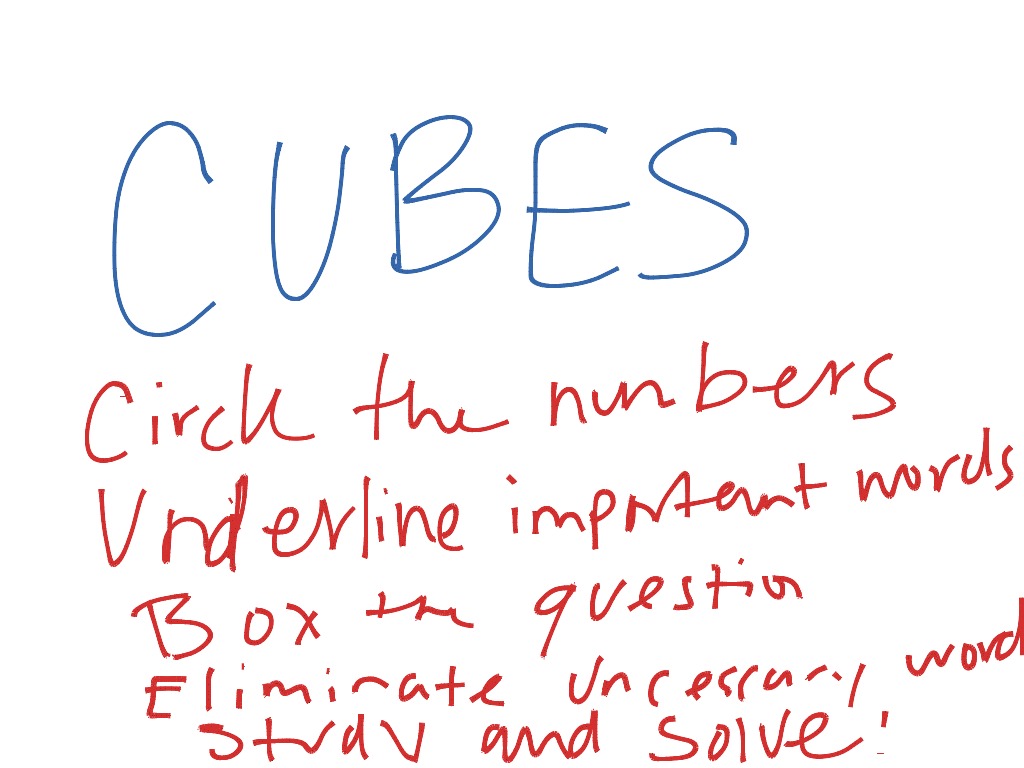 CUBES
Circle the numbers
Underline important words
Box the question
Eliminate uncessary word
Study and solve!